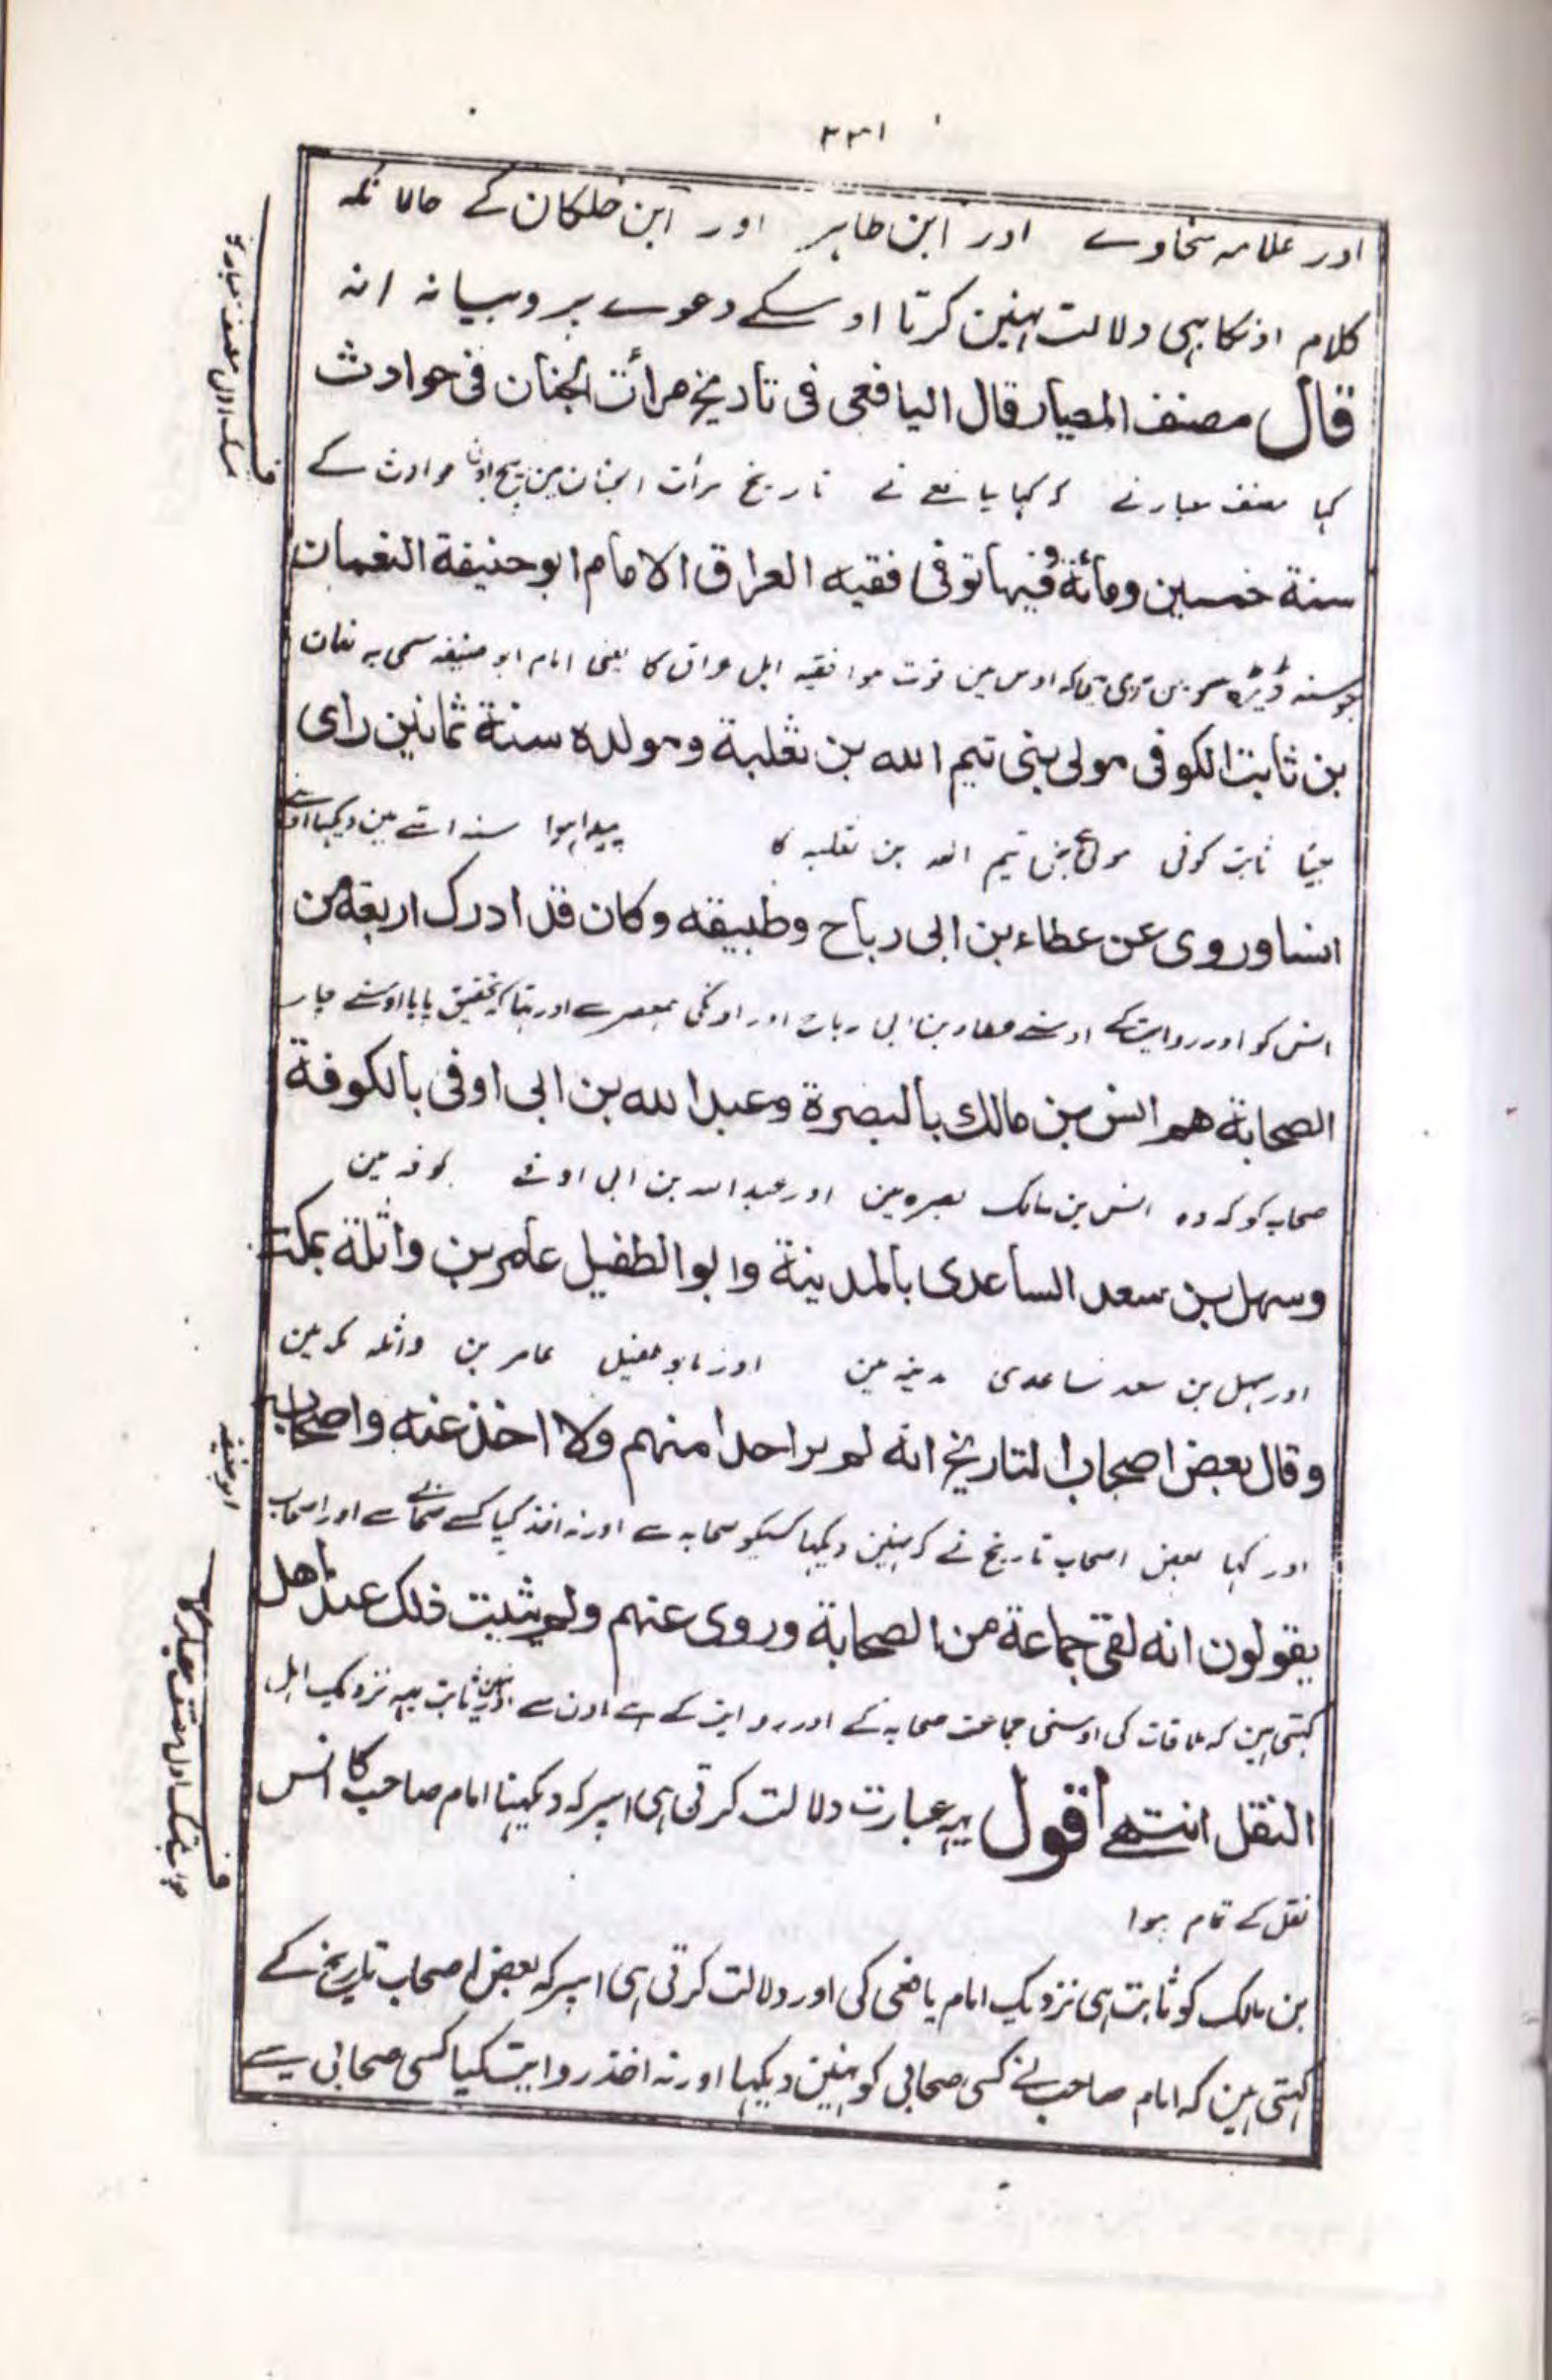 ۲۳۱
اور علامہ سخاوے اور ابن طاہر اور ابن خلکان کے حالانکہ
کلام اونکا بہی دلالت نہین کرتا اوسکے دعوے پر وبیانہ انہ
قال مصنف المعیار قال الیافعی فی تاریخ مرأت الجنان فی حوادث
کہا مصنف معیار نے کہ کہا یافعے نے تاریخ مرأت الجنان مین بیچ اون حوادث کے
سنة خمسین ومائة وفیها توفی فقیه العراق الامام ابوحنیفة النعمان
جو سنہ ڈیڑہ سو مین تہی کہ اوس مین فوت ہوا فقیہ اہل عراق کا یعنی امام ابو حنیفہ مسمی بہ نعمان
بن ثابت الکوفی مولی بنی تیم الله بن ثعلبة ومولده سنة ثمانین رای
بیٹا ثابت کوفی مولی بنی تیم اللہ بن ثعلبہ کا پیدا ہوا سنہ اسّے مین دیکہا اوسنے
انسا وروی عن عطاء بن ابی رباح وطبیقه وکان قد ادرک اربعة من
انس کو اور روایت کے اوسنے عطاء بن ابی رباح اور اونکی ہمعصر سے اور تہا کہ تحقیق پایا اوسنے چار
الصحابة هم انس بن مالك بالبصرة وعبد الله بن ابی اوفی بالکوفة
صحابہ کو کہ وہ انس بن مالک بصرہ مین اور عبد اللہ بن ابی اوفے کوفہ مین
وسهل بن سعد الساعدی بالمدینة وابو الطفیل عامر بن واثلة بمکة
اور سہل بن سعد ساعدی مدینہ مین اور ابو طفیل عامر بن واثلہ مکہ مین
وقال بعض اصحاب التاریخ انه لم یر احدا منهم ولا اخذ عنه واصحابہ
اور کہا بعض اصحاب تاریخ نے کہ نہین دیکہا کسیکو صحابہ سے اور نہ اخذ کیا کسے صحابے سے اور اصحاب
ابو حنیفہ
یقولون انه لقی جماعة من الصحابة وروی عنهم ولم یثبت ذلک عند اهل
کہتی ہین کہ ملاقات کی اوسنی جماعت صحابہ کے اور روایت کے ہے اون سے اور نہین ثابت یہہ نزدیک اہل
النقل انتهے اقول یہہ عبارت دلالت کرتی ہی اسپر کہ دیکہنا امام صاحب کا انس
نقل کے تمام ہوا
بن مالک کو ثابت ہی نزدیک امام یافعی کی اور دلالت کرتی ہی اسپر کہ بعض اصحاب تاریخ کے
کہتی ہین کہ امام صاحب نے کسی صحابی کو نہین دیکہا اور نہ اخذ روایت کیا کسی صحابی سے